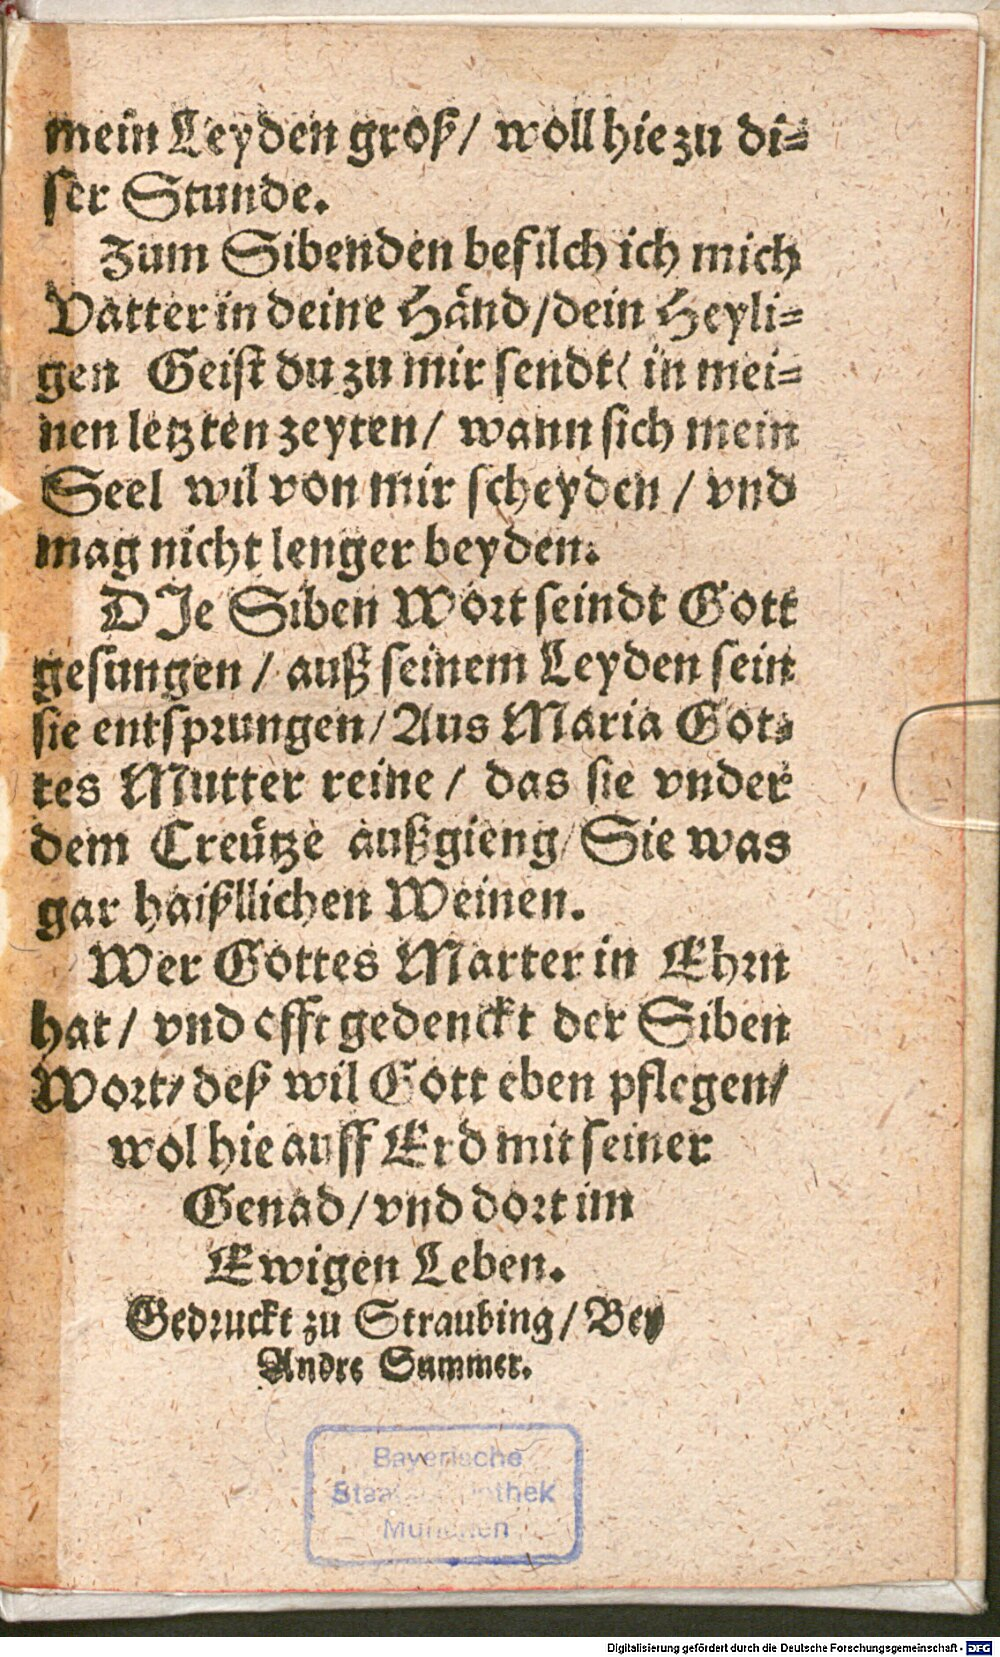 mein Leyden groß/ woll hie zu di⸗
ser Stunde.
Zum Sibenden befilch ich mich
Vatter in deine Händ/dein Heyli⸗
gen Geist du zu mir sendt/ in mei⸗
nen letzten zeyten/ wann sich mein
Seel wil von mir scheyden / vnd
mag nicht lenger beyden.
DIe Siben Wort seindt Gott
gesungen / auß seinem Leyden sein
sie entsprungen/Aus Maria Got⸗
tes Mutter reine / das sie vnder
dem Creütze außgieng/Sie was
gar haißllichen Weinen.
Wer Gottes Marter in Ehrn
hat/ vnd offt gedenckt der Siben
Wort/ deß wil Gott eben pflegen/
wol hie auff Erd mit seiner
Genad/vnd dort im
Ewigen Leben.
Gedruckt zu Straubing/ Bey
Andre Summer.
Bayerische
Staatsbibliothek
München
Digitalisierung gefördert durch die Deutsche Forschungsgemeinschaft - DFG